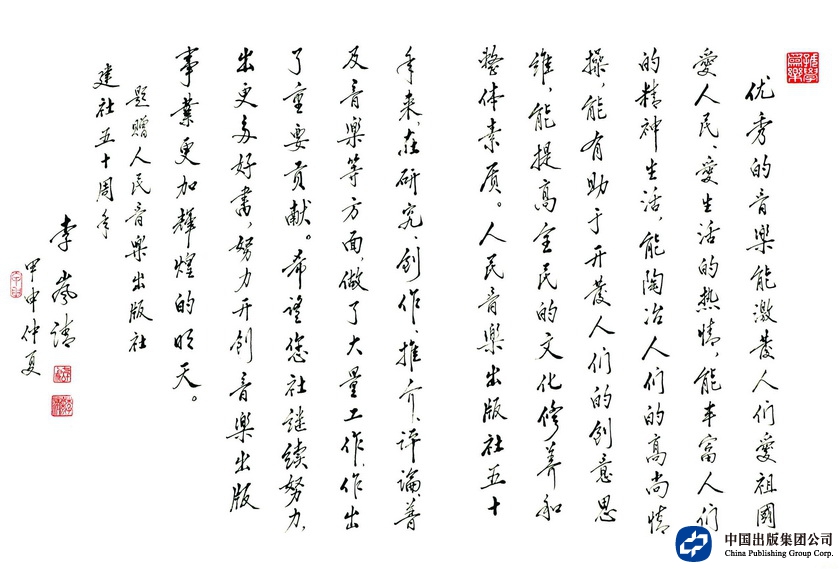 优秀的音樂能激發人们愛祖國
愛人民、愛生活的热情，能丰富人们
的精神生活，能陶冶人们的高尚情
操，能有助于开發人们的创意思
维，能提高全民的文化修养和
整体素质。人民音樂出版社五十
年来，在研究、创作、推介、评論、普
及音樂等方面，做了大量工作，作出
了重要贡献。希望您社继续努力，
出更多好書，努力开创音樂出版
事業更加辉煌的明天。
题赠人民音樂出版社
建社五十周年
李岚清
甲申仲夏
中国出版集团公司
China Publishing Group Corp.